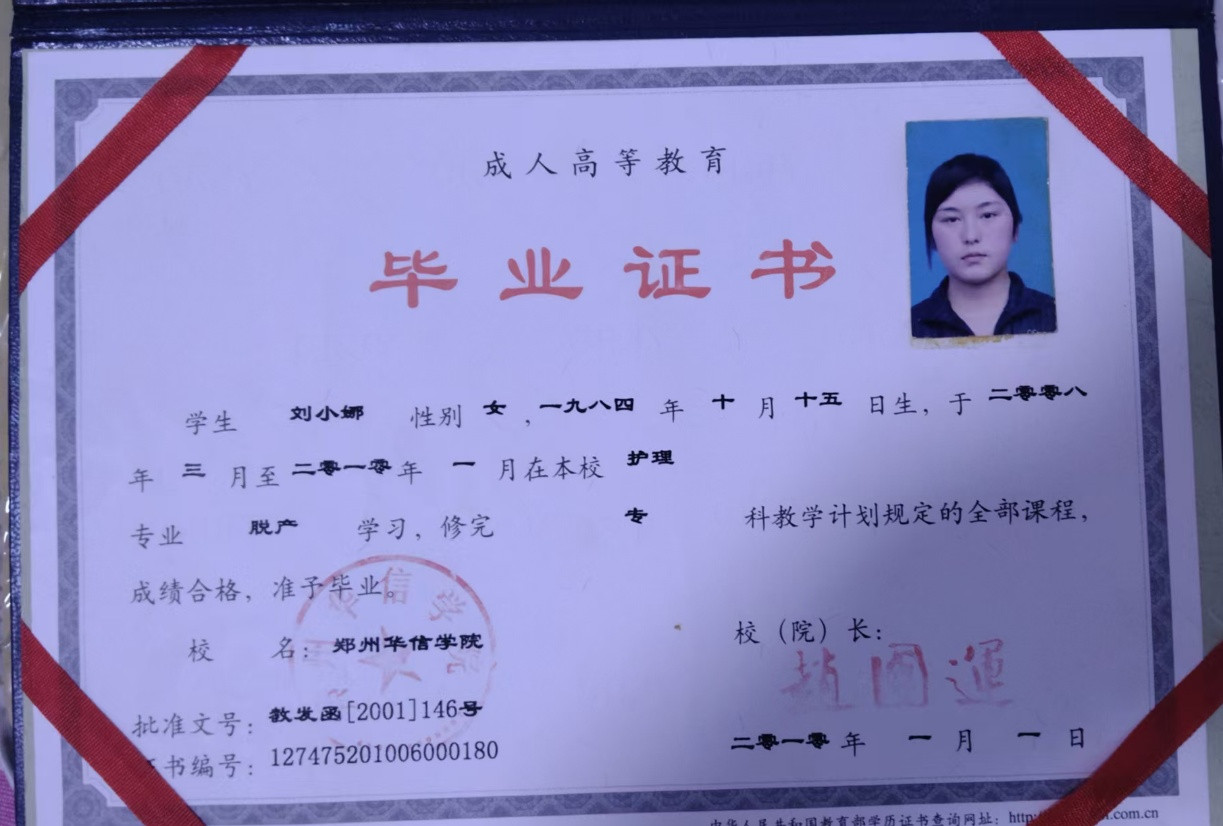 成人高等教育
毕业证书
学生 刘小娜 性别 女，一九八四 年 十 月 十五 日生，于 二零零八
年 三 月至 二零一零 年 一 月在本校 护理
专业 脱产 学习，修完 专 科教学计划规定的全部课程，
成绩合格，准予毕业。
校 名：郑州华信学院
校（院）长：
赵国运
批准文号：教发函[2001]146号
二零一零 年 一 月 一 日
证书编号：127475201006000180
中华人民共和国教育部学历证书查询网址：http .com.cn